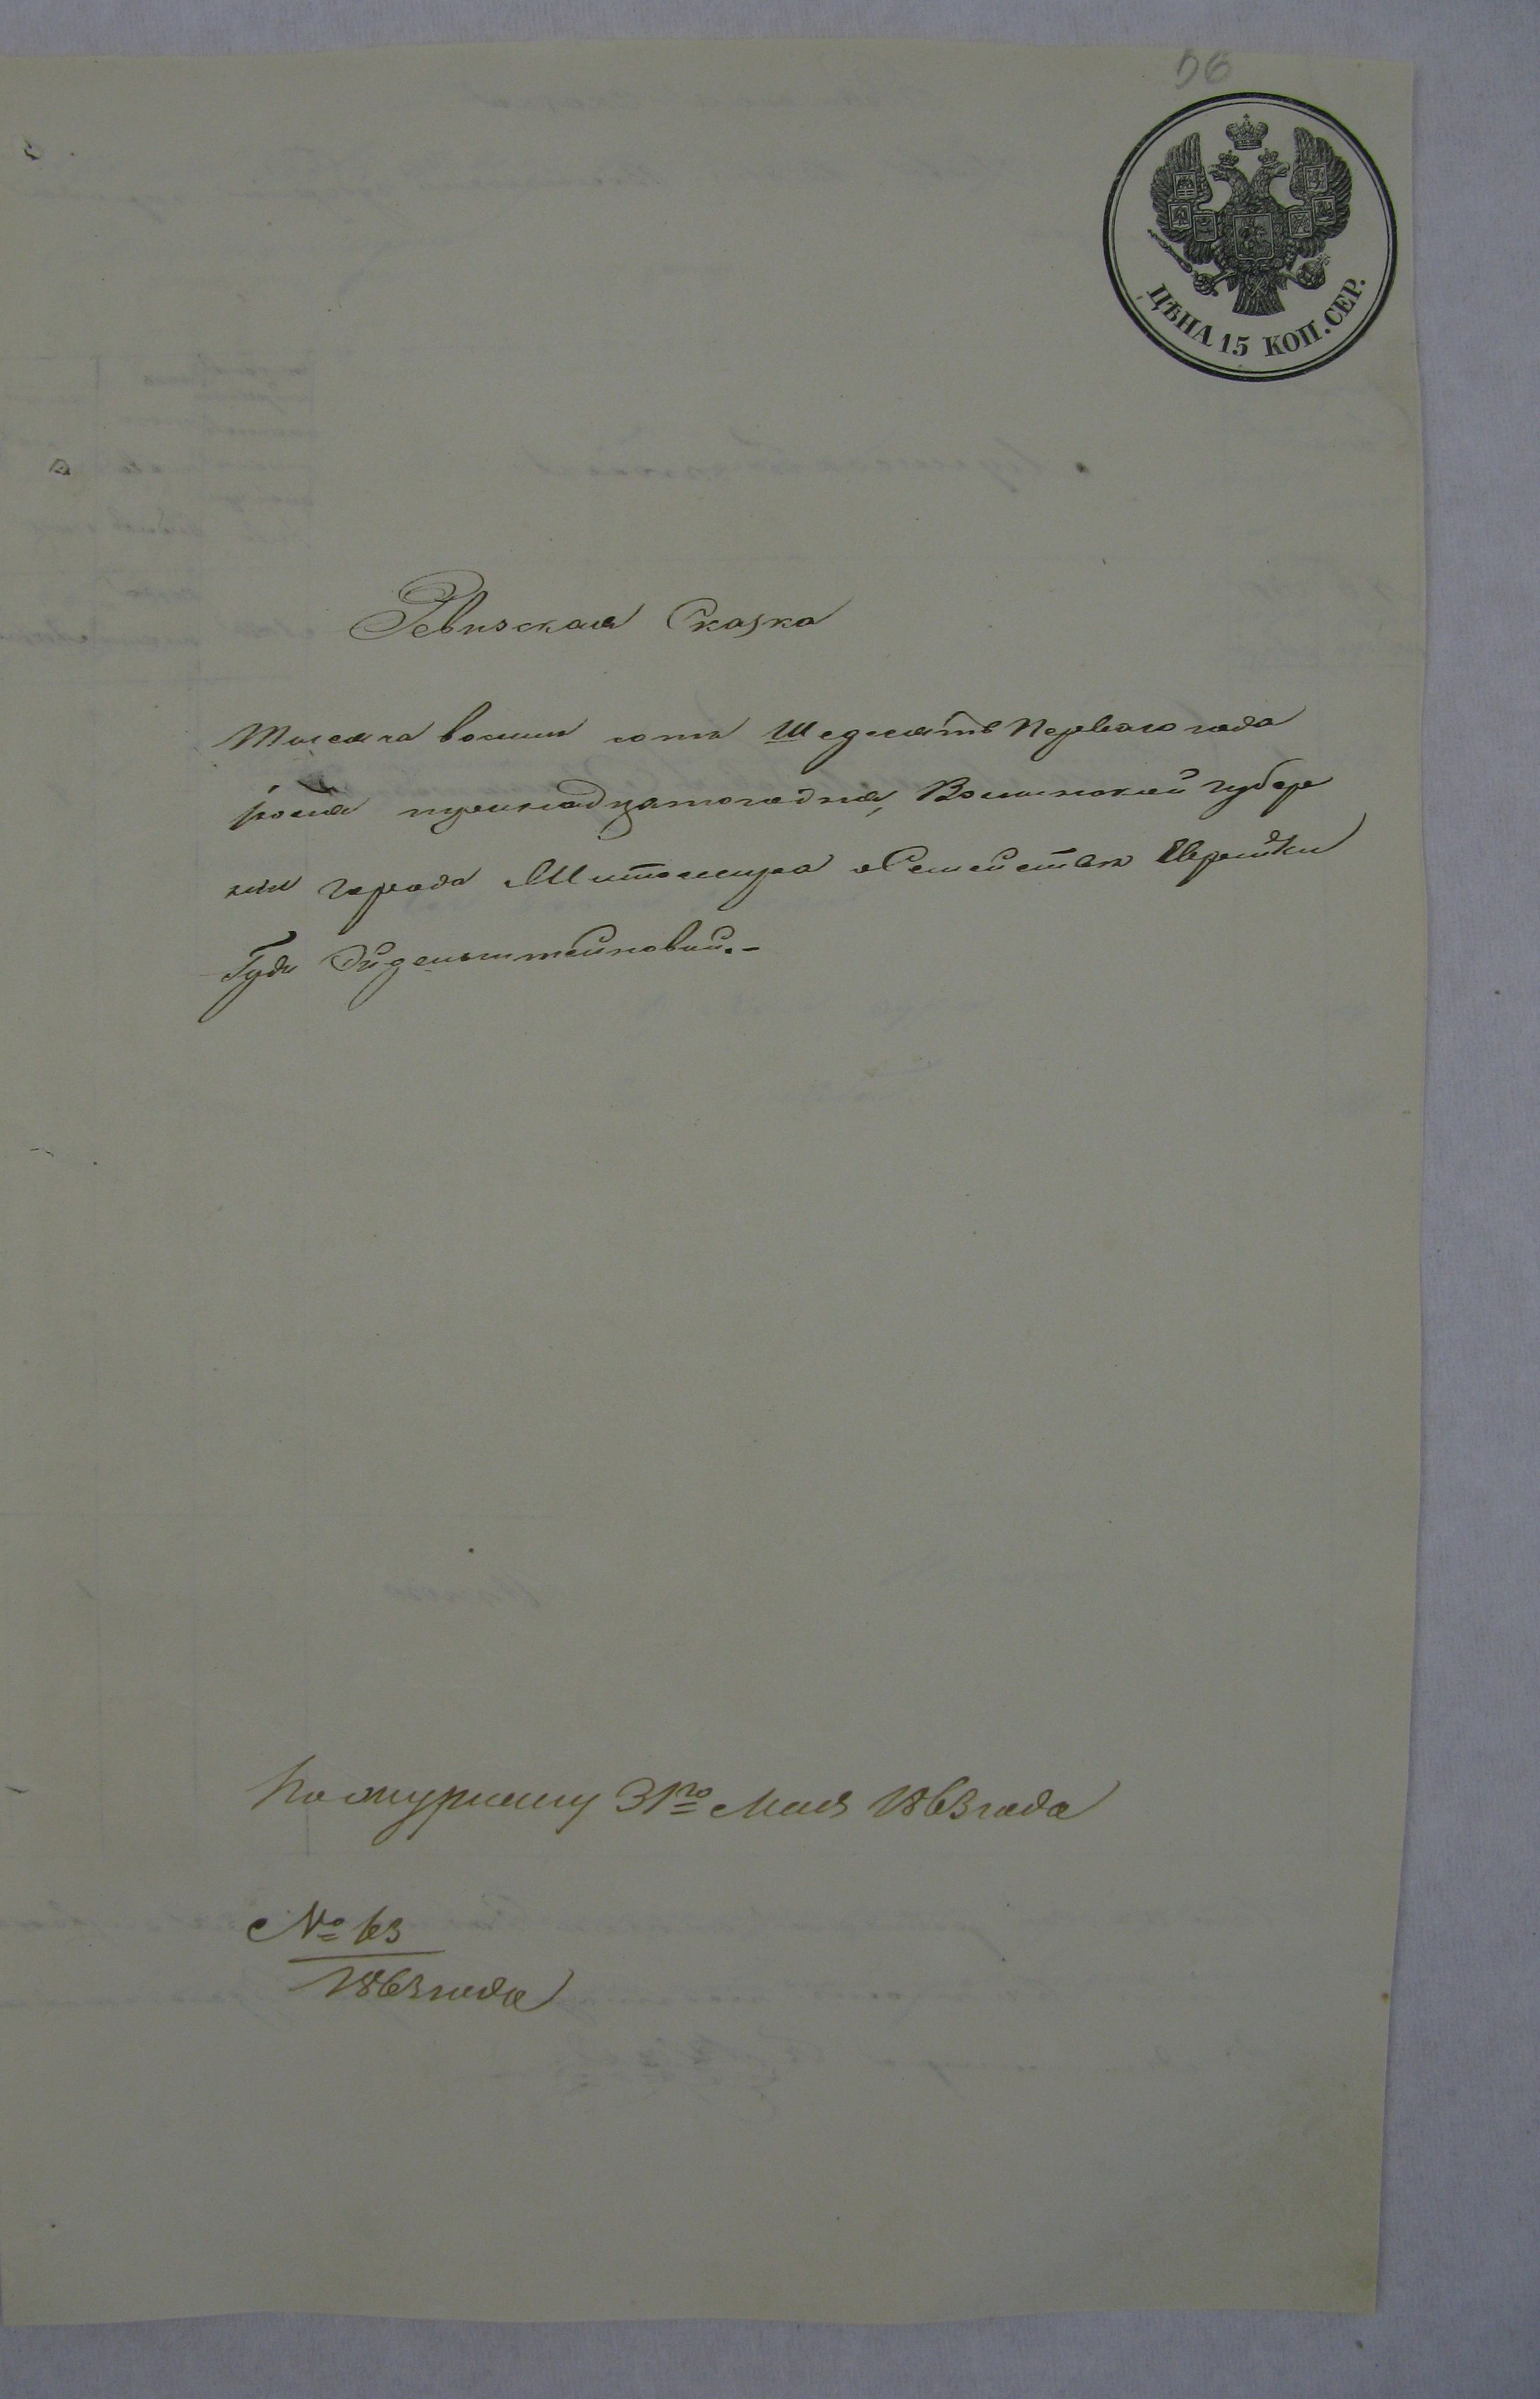 56
ЦѢНА 15 КОП. СЕР.
Ревизская Сказка
Тысяча восемь сотъ Шедесятъ Перваго года
Іюля тринадцатогодня, Волынской губер
ніи города Житомира о Семействе Еврейки
Гуди Эйдельштейновой.-
По журналу 31го Мая 1863 года
№ 63
1863 года